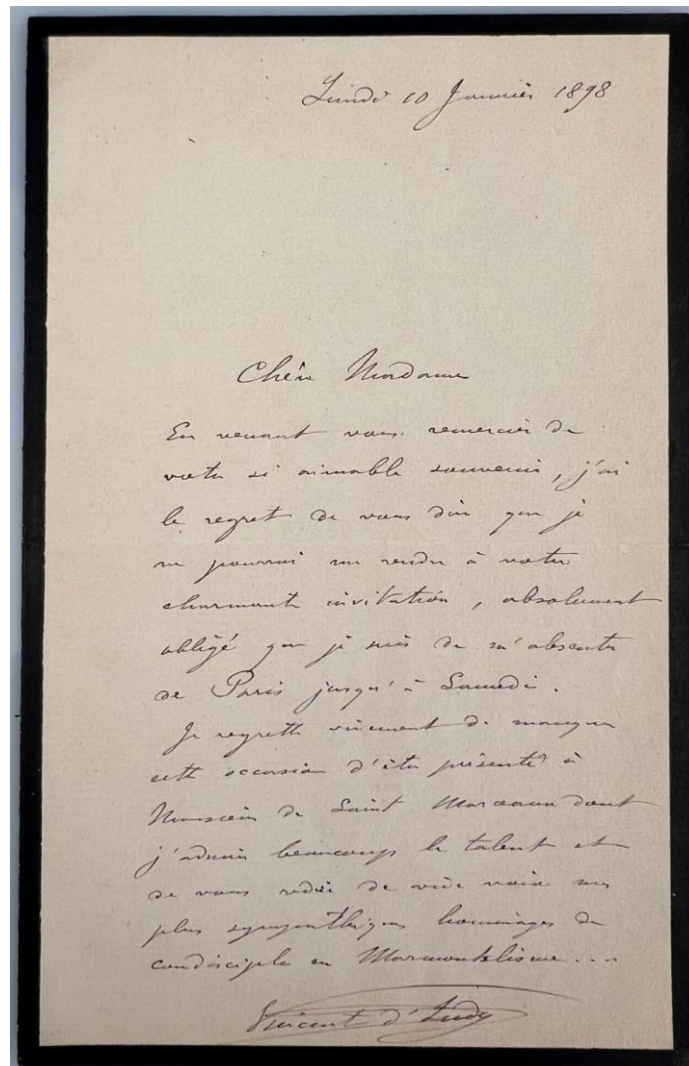 Lundi 10 Janvier 1898
Chère Madame
En venant vous remercier de
votre si aimable souvenir, j'ai
le regret de vous dire que je
ne pourrai me rendre à votre
charmante invitation, absolument
obligé que je suis de m'absenter
de Paris jusqu'à Samedi.
Je regrette vivement de manquer
cette occasion d'être présenté à
Monsieur de Saint Marceaux dont
j'admire beaucoup le talent et
de vous redire de vive voix mes
plus sympathiques hommages de
condisciple en Marmontelisme...
Vincent d'Indy